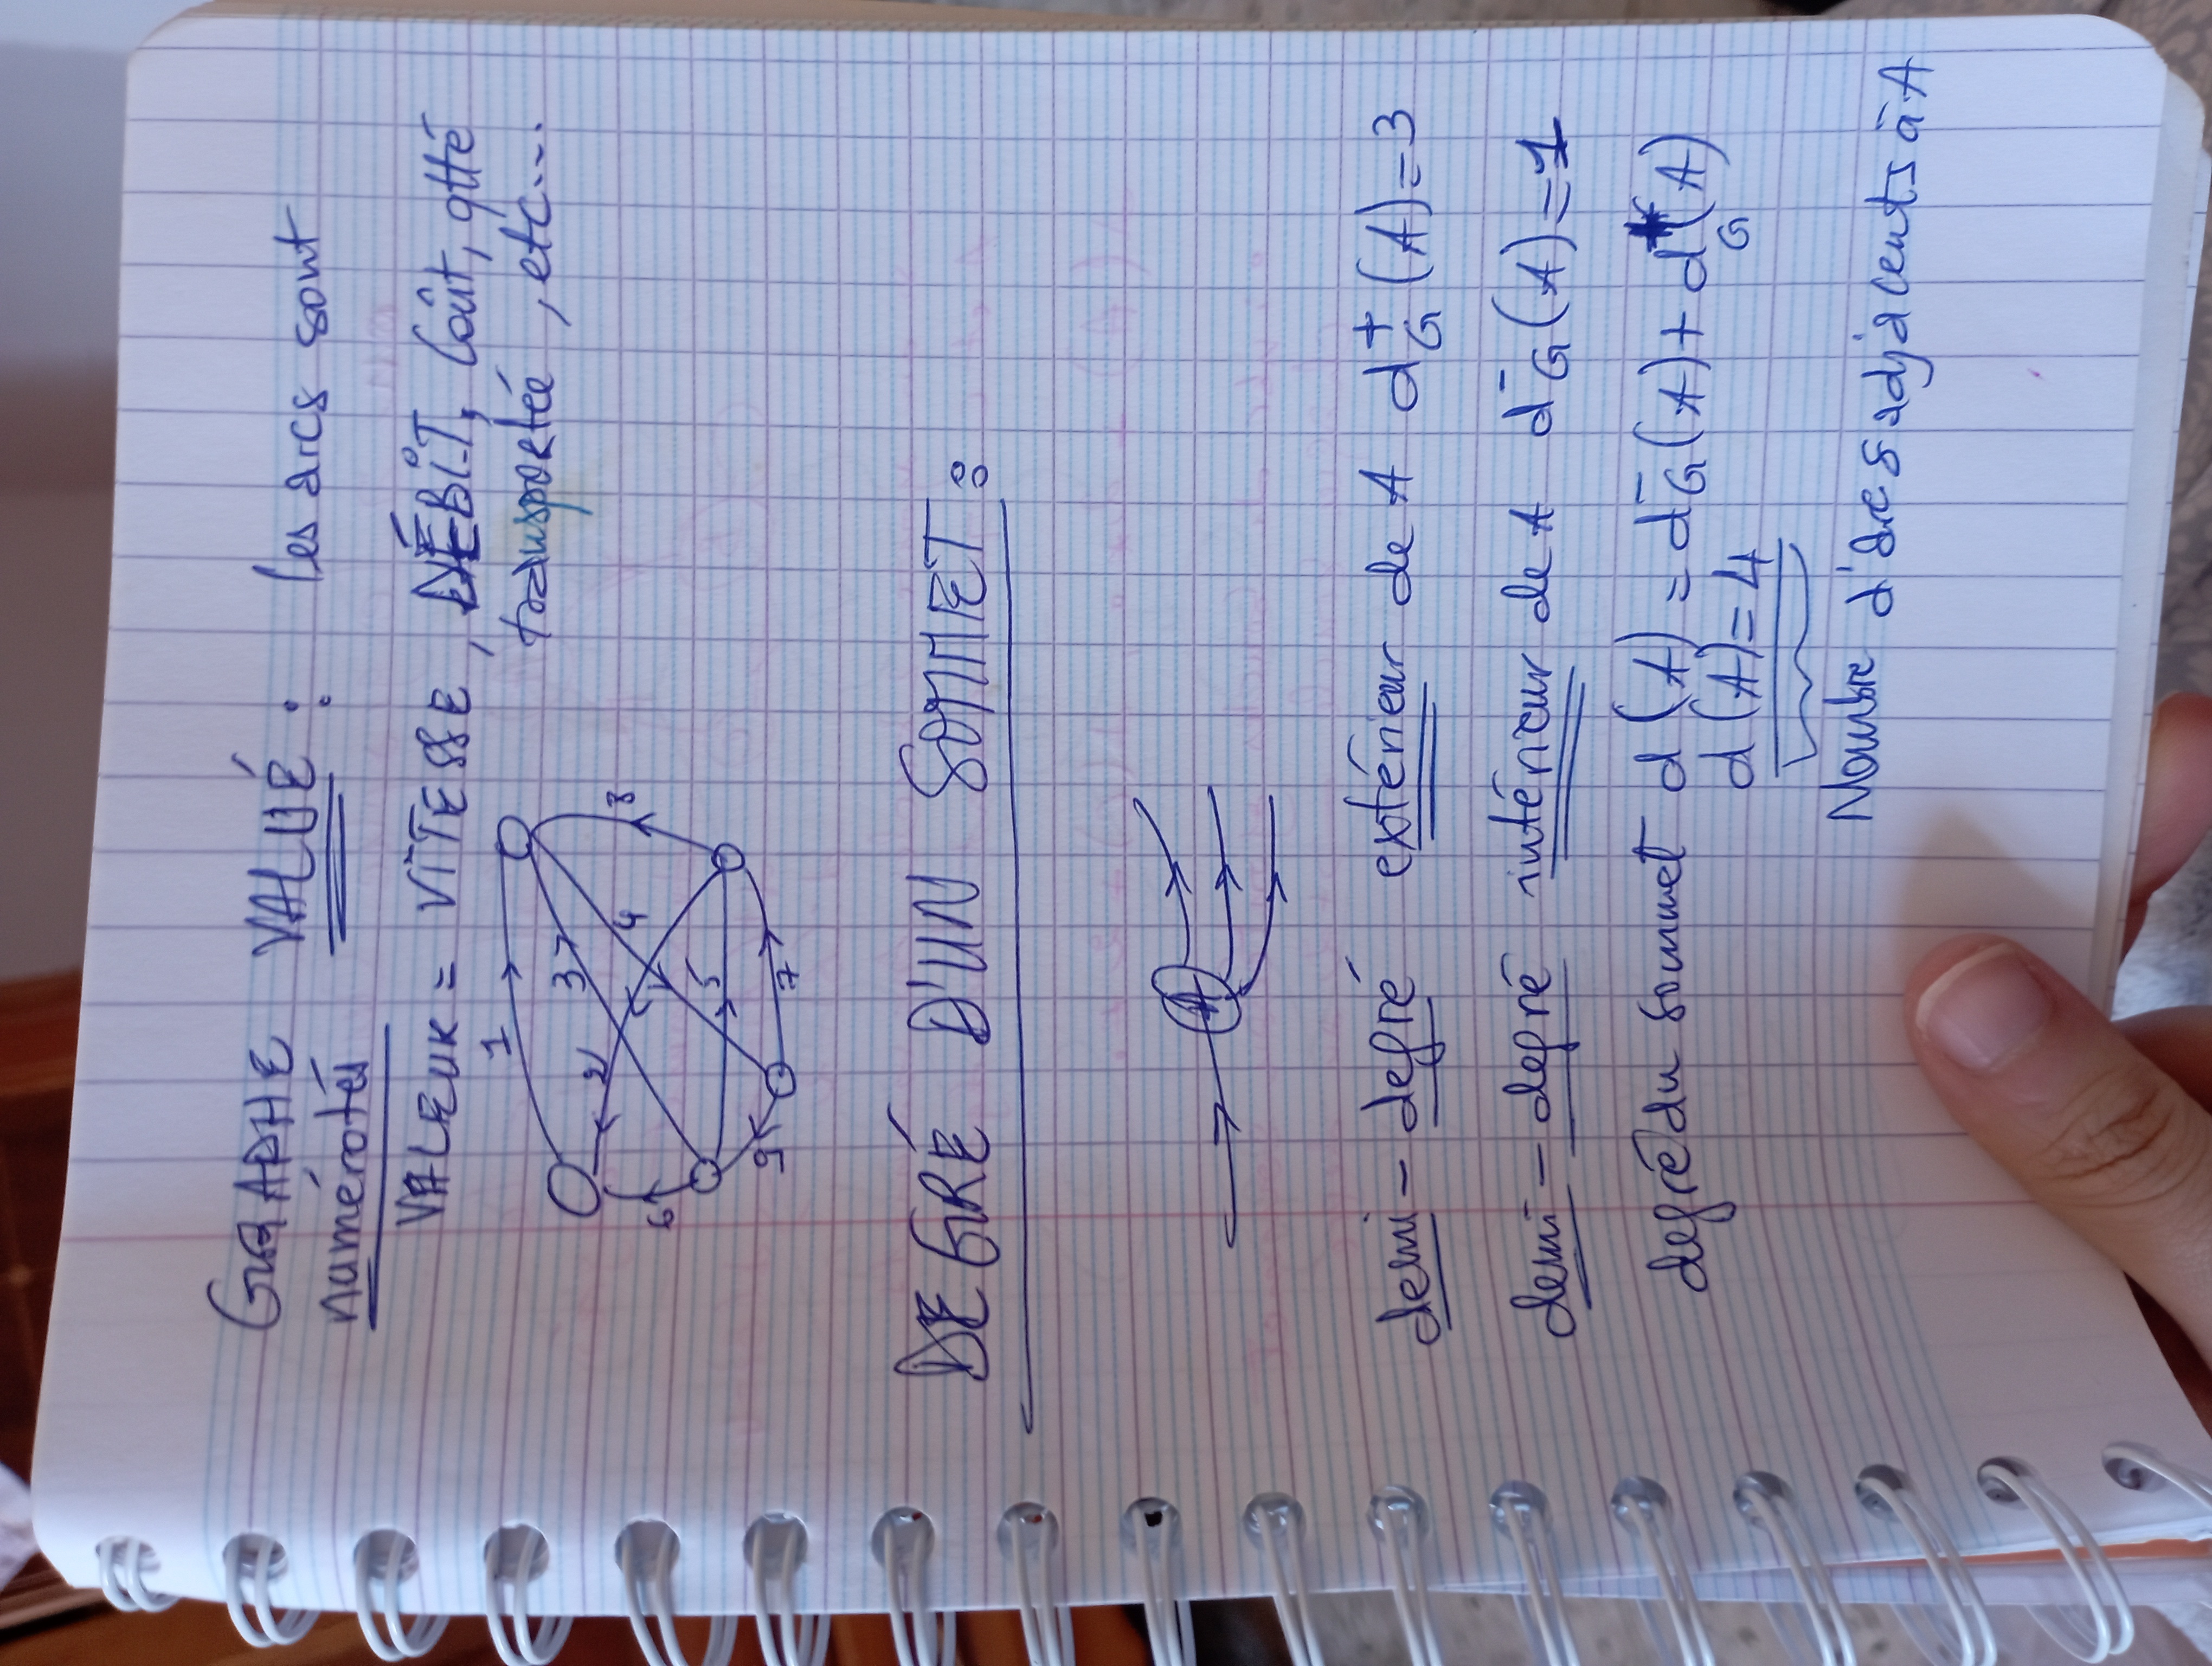 GRAPHE VALUÉ : les arcs sont
numérotés
VALEUR = VITESSE, DÉBIT, Coût, qtté
transportée, etc...
1
3
2
4
8
6
5
9
7
DEGRÉ D'UN SOMMET :
A
demi-degré extérieur de A d⁺G(A)=3
demi-degré intérieur de A d⁻G(A)=1
degré du sommet d(A) = d⁻G(A)+ d⁺G(A)
d(A)=4
Nombre d'arcs adjacents à A